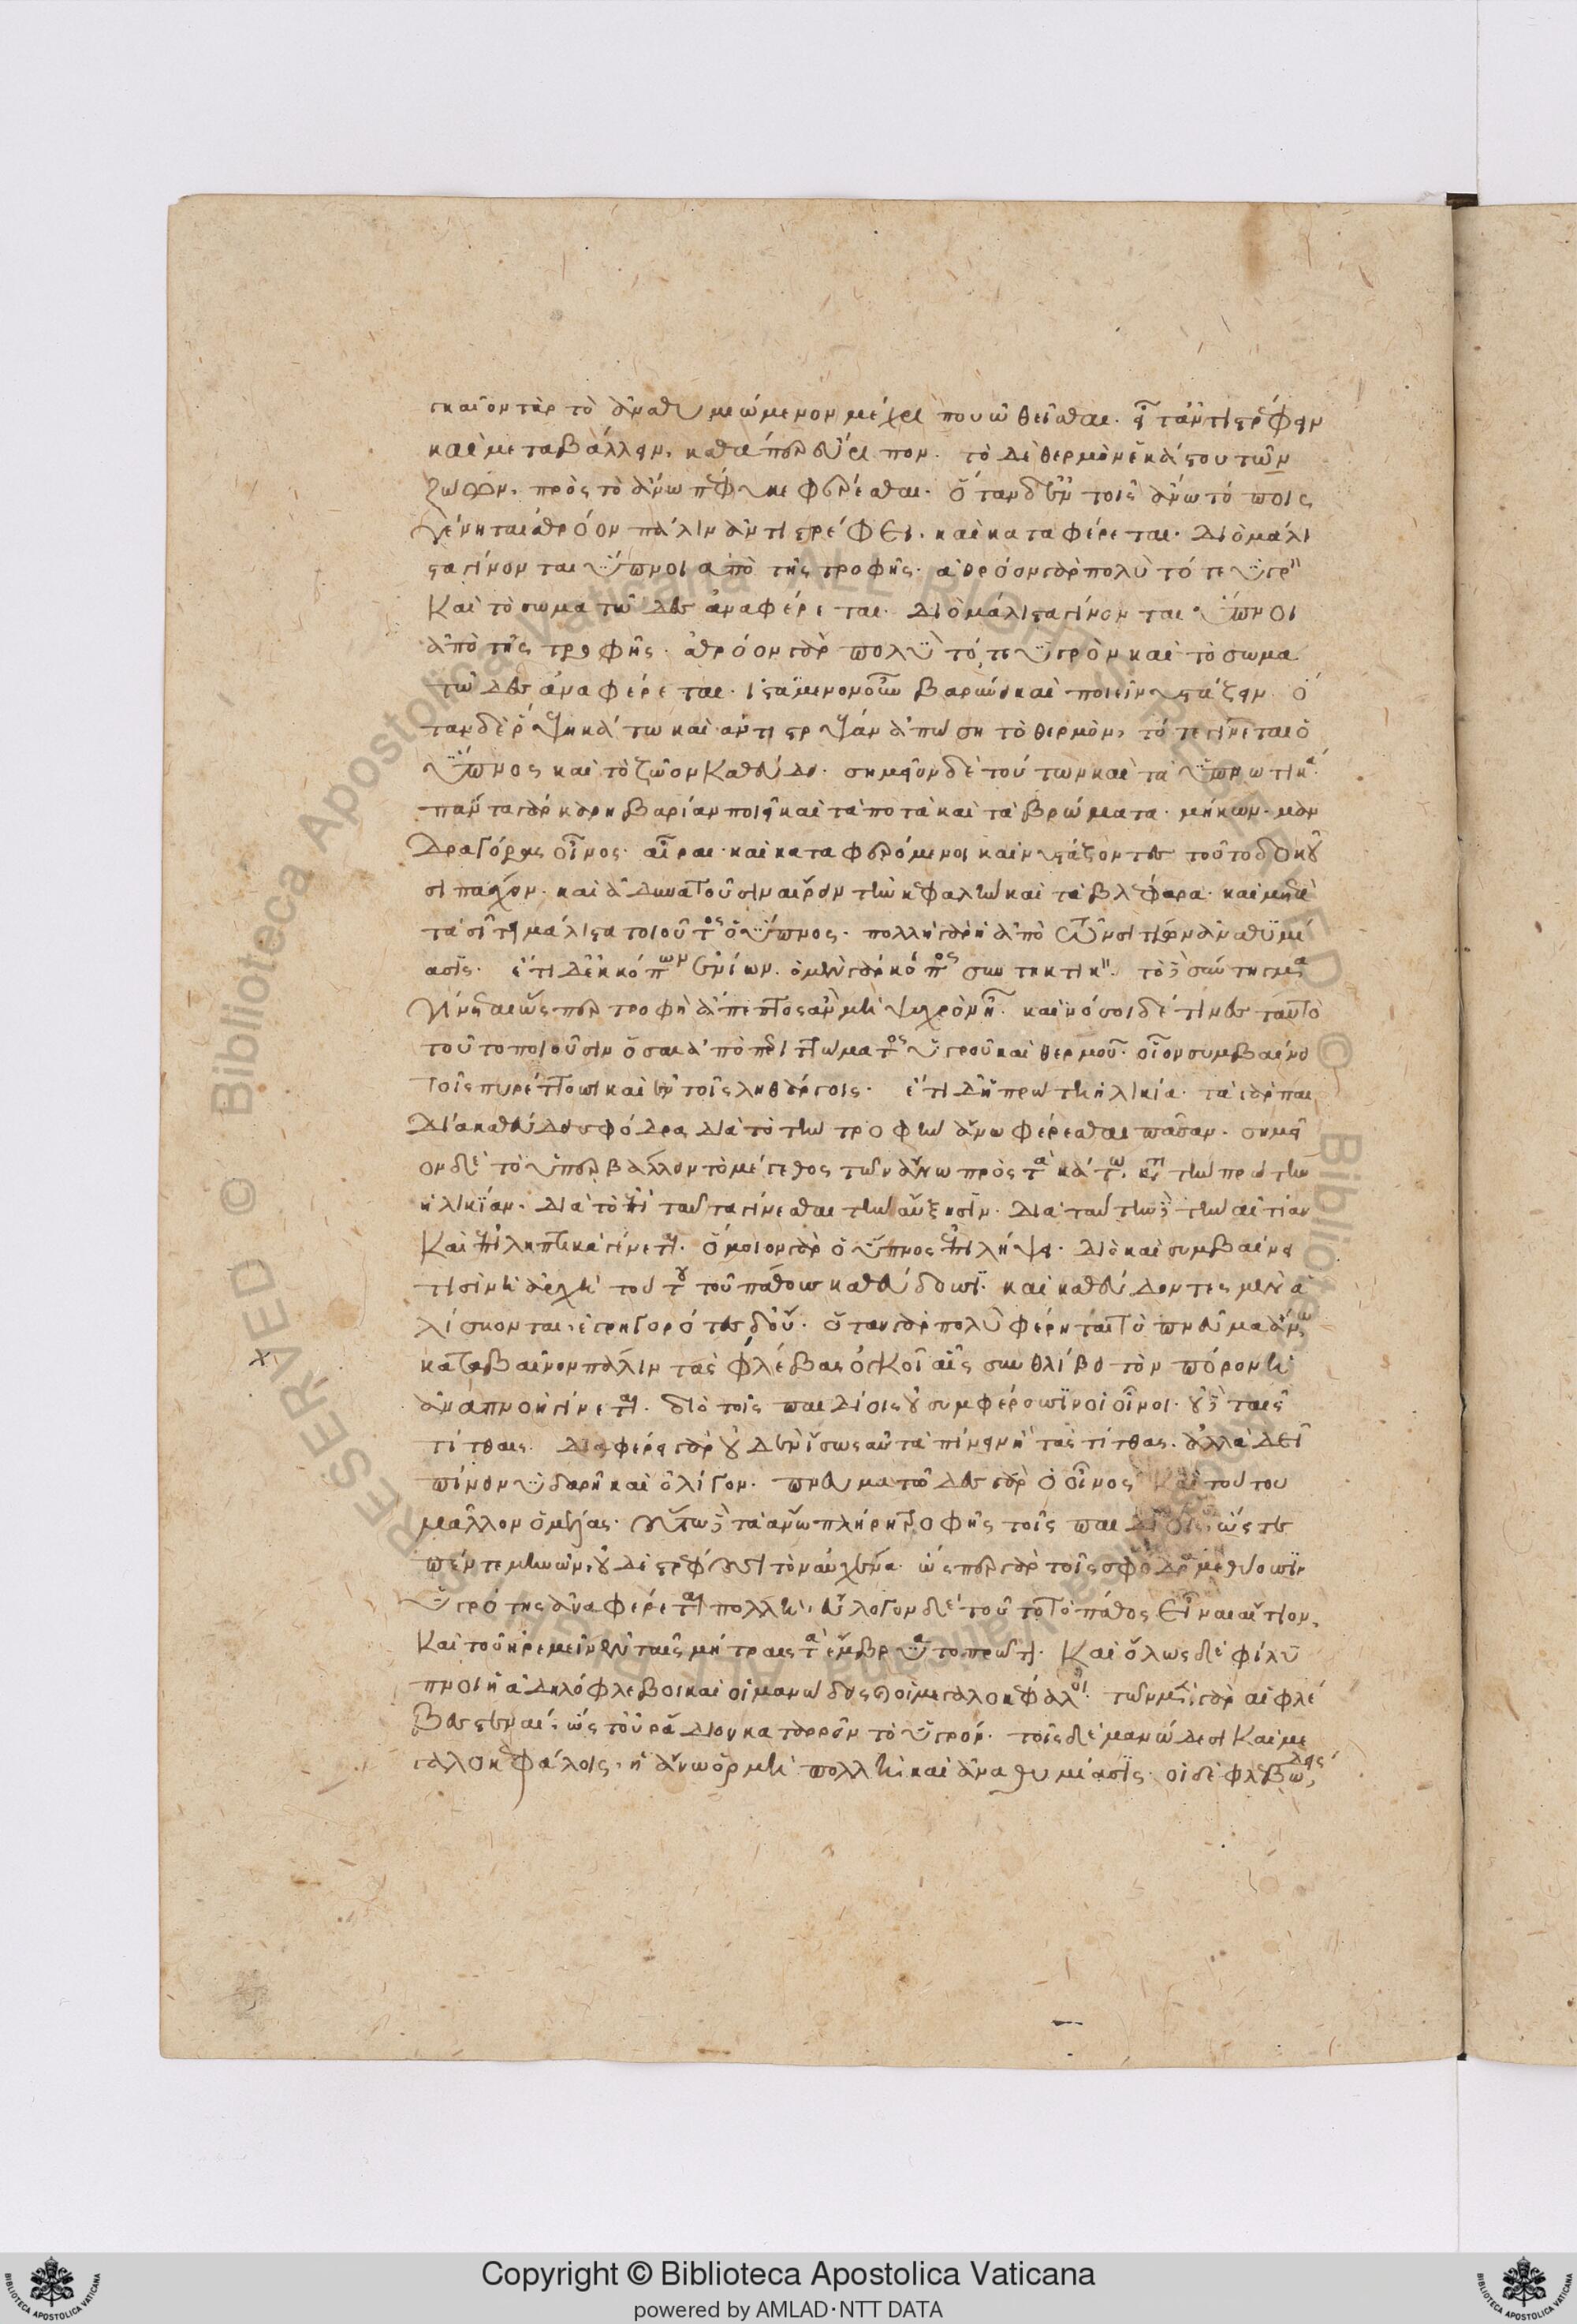 γκαῖον γὰρ τὸ ἀναθυμιώμενον μέχρι που ὠθεῖσθαι. εἶτ' ἀντιστρέφειν
καὶ μεταβάλλειν, καθάπερ εὔριπον. τὸ δὲ θερμὸν ἑκάστου τῶν
ζώων, πρὸς τὸ ἄνω πέφυκε φέρεσθαι. ὅταν δ' ἐν τοῖς ἄνω τόποις
γένηται ἀθρόον πάλιν ἀντιστρέφει. καὶ καταφέρεται. διὸ μάλι
στα γίνονται ὕπνοι ἀπὸ τῆς τροφῆς. ἀθρόον γὰρ πολὺ τό τε ὑγρ
καὶ τὸ σωματῶδες ἀναφέρεται. διὸ μάλιστα γίνονται ὕπνοι
ἀπὸ τῆς τροφῆς. ἀθρόον γὰρ πολὺ τό τε ὑγρὸν καὶ τὸ σωμα
τῶδες ἀναφέρεται. ἱστάμενον οὖν βαρύνει καὶ ποιεῖ νυστάζειν. ὅ
ταν δὲ ῥέψῃ κάτω καὶ ἀντιστρέψαν ἀπώσῃ τὸ θερμὸν, τότε γίνεται ὁ
ὕπνος καὶ τὸ ζῶον καθεύδει. σημεῖον δὲ τούτων καὶ τὰ ὑπνωτικά.
πάντα γὰρ καρηβαρίαν ποιεῖ καὶ τὰ ποτὰ καὶ τὰ βρώματα. μήκων. μαν
δραγόρας οἶνος. αἶραι. καὶ καταφερόμενοι καὶ νυστάζοντες τοῦτο δοκοῦ
σι πάσχειν. καὶ ἀδυνατοῦσιν αἴρειν τὴν κεφαλὴν καὶ τὰ βλέφαρα. καὶ μετὰ
τὰ σιτία μάλιστα τοιοῦτος ὁ ὕπνος. πολλὴ γὰρ ἡ ἀπὸ τῶν σιτίων ἀναθυμί
ασις. ἔτι δ' ἐκ κόπων ἐνίων. ὁ μὲν γὰρ κόπος συντηκτικ. τὸ δὲ σύντηγμα
γίνεται ὥσπερ τροφὴ ἄπεπτος ἂν μὴ ψυχρὸν ᾖ. καὶ νόσοι δέ τινες ταὐτὸ
τοῦτο ποιοῦσιν ὅσαι ἀπὸ περιττώματος ὑγροῦ καὶ θερμοῦ. οἷον συμβαίνει
τοῖς πυρέττουσι καὶ ἐν τοῖς ληθάργοις. ἔτι δ' ἡ πρώτη ἡλικία. τὰ γὰρ παι
δία καθεύδει σφόδρα διὰ τὸ τὴν τροφὴν ἄνω φέρεσθαι πᾶσαν. σημεῖ
ον δὲ τὸ ὑπερβάλλειν τὸ μέγεθος τῶν ἄνω πρὸς τὰ κάτω, κατὰ τὴν πρώτην
ἡλικίαν. διὰ τὸ ἐπὶ ταῦτα γίνεσθαι τὴν αὔξησιν. διὰ ταύτην δὲ τὴν αἰτίαν
καὶ ἐπιληπτικὰ γίνεται. ὅμοιον γὰρ ὁ ὕπνος ἐπιλήψει. διὸ καὶ συμβαίνει
τισὶν ἡ ἀρχὴ τούτου τοῦ πάθους καθεύδουσι. καὶ καθεύδοντες μὲν ἁ
λίσκονται, ἐγρηγορότες δ' οὔ. ὅταν γὰρ πολὺ φέρηται τὸ πνεῦμα ἄνω
καταβαῖνον πάλιν τὰς φλέβας ὀγκοῖ καὶ συνθλίβει τὸν πόρον ἡ
ἀναπνοὴ γίνεται. διὸ τοῖς παιδίοις οὐ συμφέρουσιν οἱ οἶνοι. οὐδὲ ταῖς
τίτθαις. διαφέρει γὰρ οὐδὲν ἴσως αὐτὰ πίνειν ἢ τὰς τίτθας. ἀλλὰ δεῖ
πίνειν ὑδαρῆ καὶ ὀλίγον. πνευματῶδες γὰρ ὁ οἶνος καὶ τούτου
μᾶλλον ὁ μέλας. οὕτω δὲ τὰ ἄνω πλήρη τροφῆς τοῖς παιδίοις, ὥστε
πέντε μηνῶν, οὐδὲ στρέφουσι τὸν αὐχένα. ὥσπερ γὰρ τοῖς σφόδρα μεθύουσιν
ὑγρότης ἀναφέρεται πολλὴ, εὔλογον δὲ τοῦτο τὸ πάθος εἶναι αἴτιον,
καὶ τοῦ ἠρεμεῖν ἐν ταῖς μήτραις τὰ ἔμβρυα τὸ πρῶτον. καὶ ὅλως δὲ φίλυ
πνοι οἱ ἀδηλόφλεβοι καὶ οἱ νανώδεις καὶ οἱ μεγαλοκέφαλοι. τῶν μὲν γὰρ αἱ φλέ
βες στεναί, ὥστ' οὐ ῥάδιον καταρρεῖν τὸ ὑγρόν. τοῖς δὲ νανώδεσι καὶ με
γαλοκεφάλοις, ἡ ἄνω ὁρμὴ πολλὴ καὶ ἀναθυμίασις. οἱ δὲ φλεβώδεις